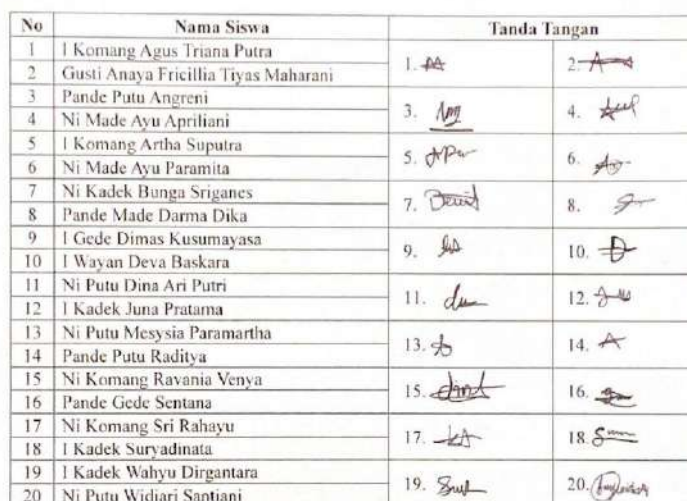 No Nama Siswa Tanda Tangan
1 I Komang Agus Triana Putra
2 Gusti Anaya Fricillia Tiyas Maharani
1. 2.
3 Pande Putu Angreni
4 Ni Made Ayu Apriliani
3. 4.
5 I Komang Artha Suputra
6 Ni Made Ayu Paramita
5. 6.
7 Ni Kadek Bunga Sriganes
8 Pande Made Darma Dika
7. 8.
9 I Gede Dimas Kusumayasa
10 I Wayan Deva Baskara
9. 10.
11 Ni Putu Dina Ari Putri
12 I Kadek Juna Pratama
11. 12.
13 Ni Putu Mesysia Paramartha
14 Pande Putu Raditya
13. 14.
15 Ni Komang Ravania Venya
16 Pande Gede Sentana
15. 16.
17 Ni Komang Sri Rahayu
18 I Kadek Suryadinata
17. 18.
19 I Kadek Wahyu Dirgantara
20 Ni Putu Widiari Santiani
19. 20.